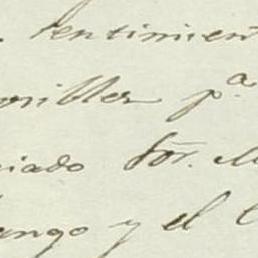 sentimien
oribles p.ª
iado Sor. M
ango y el C